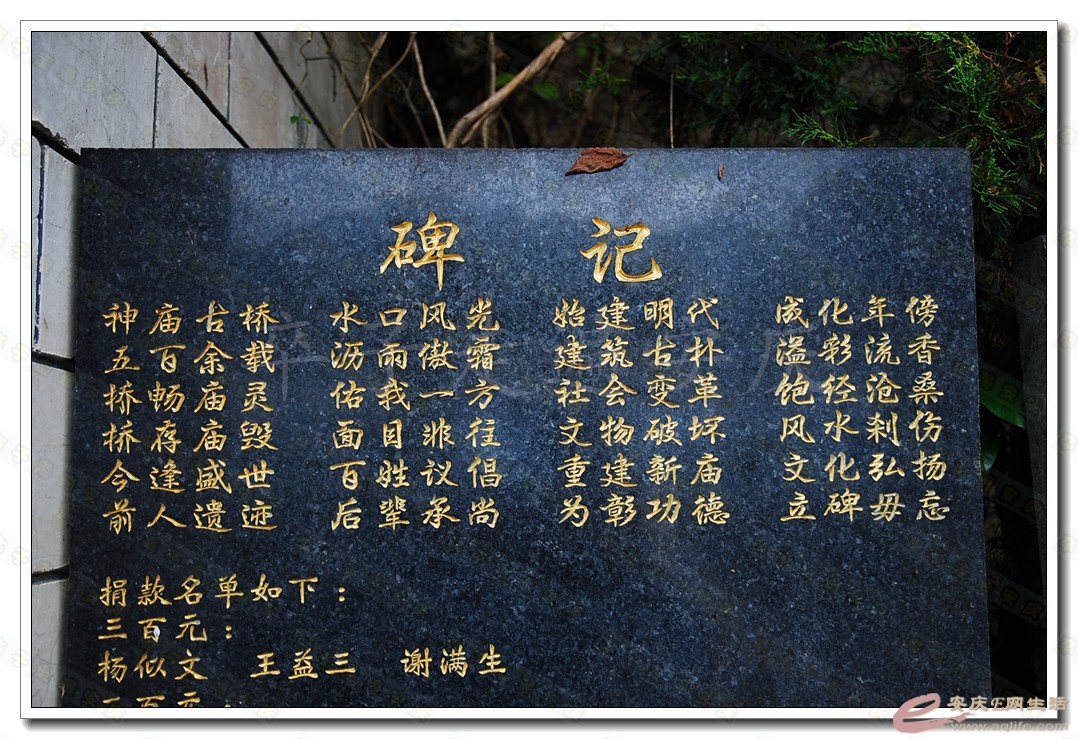 碑 记
神庙古桥 水口风光 始建明代 成化年傍
五百余载 沥雨傲霜 建筑古朴 溢彩流香
桥畅庙灵 佑我一方 社会变革 饱经沧桑
桥存庙毁 面目非往 文物破坏 风水刹伤
今逢盛世 百姓议倡 重建新庙 文化弘扬
前人遗迹 后辈承尚 为彰功德 立碑毋忘
捐款名单如下：
三百元：
杨似文 王益三 谢满生
二百元：
安庆E网生活
www.aqlife.com